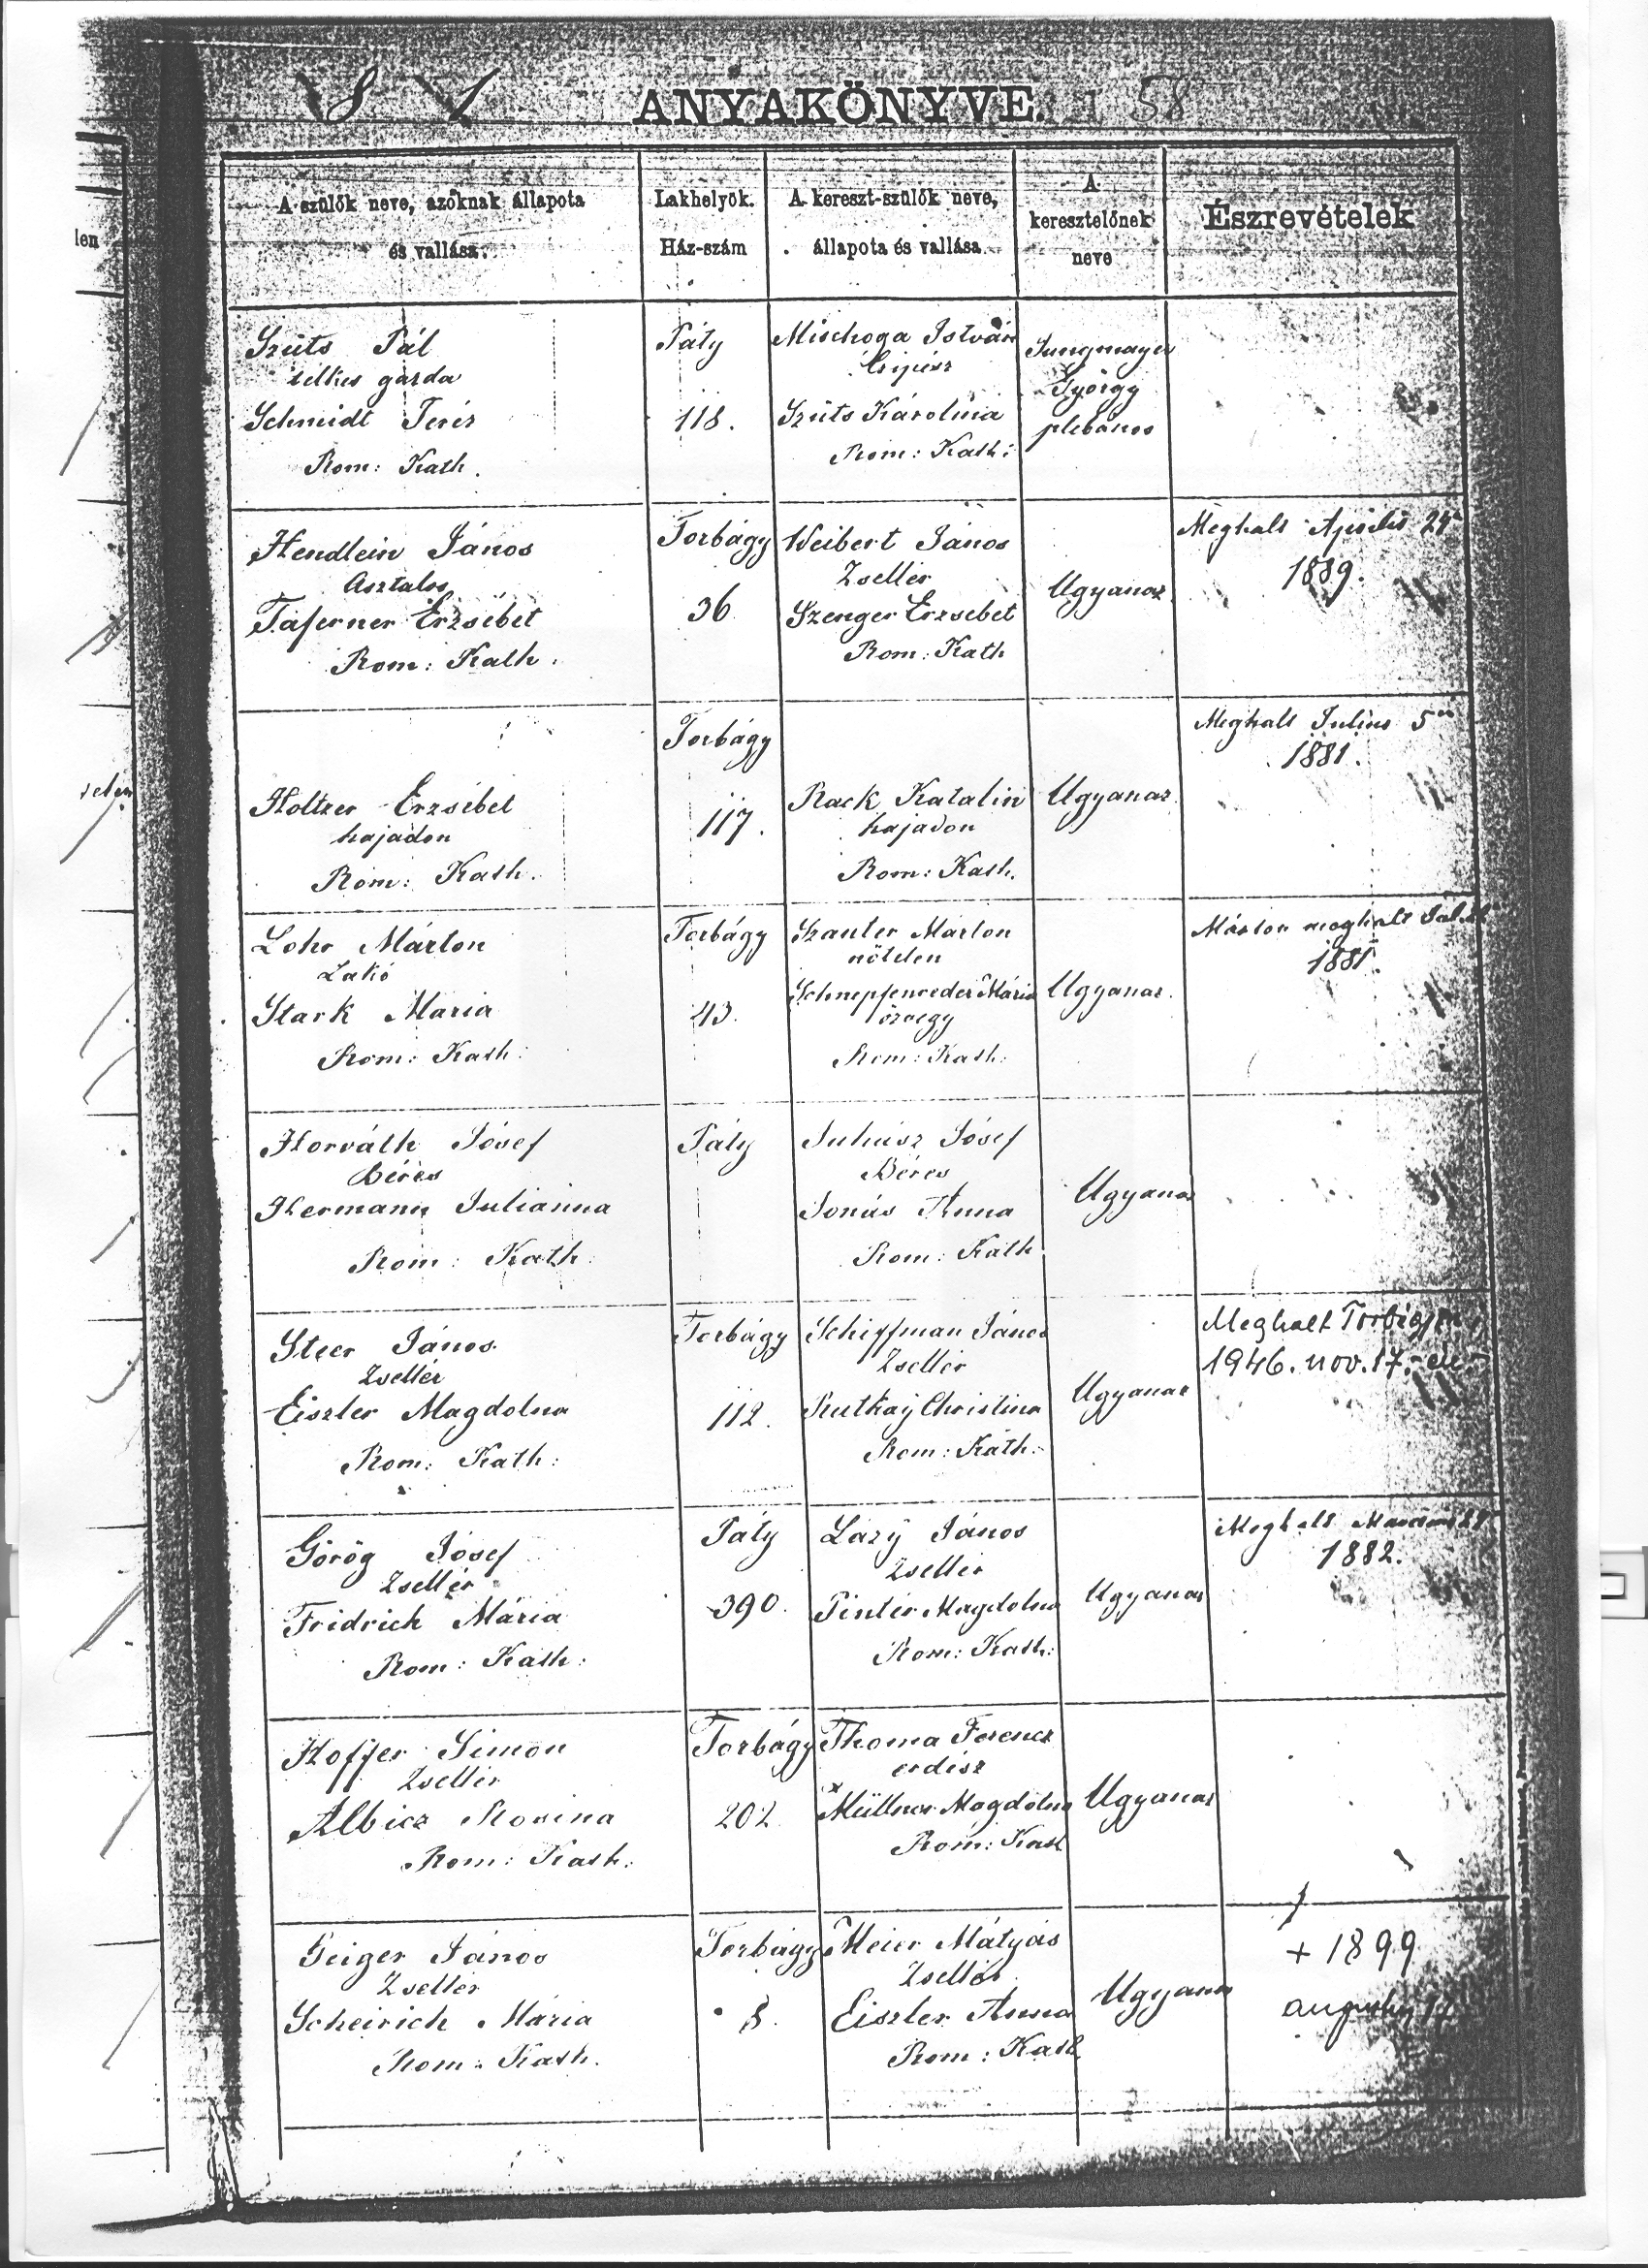 8 1
ANYAKÖNYVE.
58
A szülők neve, azoknak állapota
és vallása.
Lakhelyök.
Ház-szám
A kereszt-szülők neve,
állapota és vallása
A
keresztelőnek
neve
Észrevételek
len
Szüts Pál
telkes gazda
Schmidt Teréz
Rom: Kath.
Páty
118.
Mischoga István
Csipész
Szüts Károlina
Rom: Kath:
Jungmayer
György
plébános
Hendlein János
Asztalos
Taferner Erzsébet
Rom: Kath.
Torbágy
36
Weibert János
Zsellér
Szenger Erzsebet
Rom: Kath
Ugyanaz
Meghalt Április 24
1889.
Holtzer Erzsébet
hajadon
Rom: Kath.
Torbágy
117.
Rack Katalin
hajadon
Rom: Kath.
Ugyanaz
Meghalt Julius 5
1881.
Lohr Márton
Lakó
Stark Maria
Rom: Kath:
Torbágy
43.
Szauter Marton
nőtelen
Mária
özvegy
Rom: Kath:
Ugyanaz.
Márton meghalt
1881.
Horváth Jósef
Béres
Hermann Julianna
Rom: Kath:
Páty
Juhász Jósef
Béres
Jonás Anna
Rom: Kath.
Ugyanaz
Steer János
Zsellér
Eiszler Magdolna
Rom: Kath:
Torbágy
112.
Schiffman János
Zsellér
Rutkaÿ Christina
Rom: Kath:
Ugyanaz
Meghalt Torbágyon
1946. nov. 17.-én
Görög Jósef
Zsellér
Fridrich Mária
Rom: Kath:
Páty
390.
Lazÿ János
Zsellér
Pintér Magdolna
Rom: Kath:
Ugyanaz
Meghalt
1882.
Hoffer Simon
Zsellér
Albicz Rosina
Rom: Kath:
Torbágy
202
Thoma Ferencz
erdész
Müllner Magdolna
Rom: Kath
Ugyanaz
Geiger János
Zsellér
Scheirich Mária
Rom: Kath.
Torbágy
8.
Meier Mátyás
Zsellér
Eiszler Anna
Rom: Kath
Ugyanaz
+ 1899